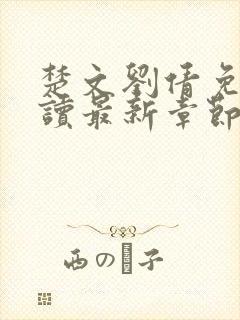 楚文劉倩免
讀最新章節
西の子